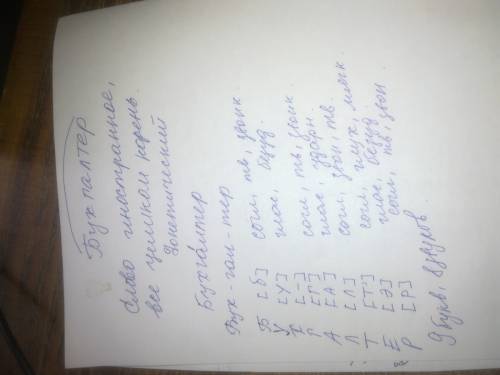 Бухгалтер
Слово иностранное,
все целиком корень.
Фонетический
Бухга́лтер
Бух-гал-тер
Б [б] согл, тв, звонк.
У [У] глас, безуд.
Х [-]
Г [Г] согл, тв, звонк.
А [А] глас, ударн.
Л [Л] согл, звон, тв.
Т [Т'] согл, глух, мягк.
Е [Э] глас, безуд.
Р [Р] согл, тв, звон.
9 букв, 8 звуков.